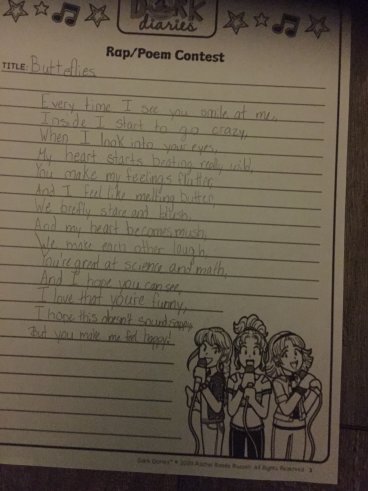 DORK
diaries
Rap/Poem Contest
TITLE: Butterflies
Every time I see you smile at me,
Inside I start to go crazy,
When I look into your eyes,
My heart starts beating really wild,
You make my feelings flutter,
And I feel like melting butter,
We briefly stare and blush,
And my heart becomes mush,
We make each other laugh,
You're great at science and math,
And I hope you can see,
I love that youre funny,
I hope this doesn't sound sappy,
But you make me feel happy!
Dork Diaries™ © 2009 Rachel Renée Russell. All Rights Reserved. 3